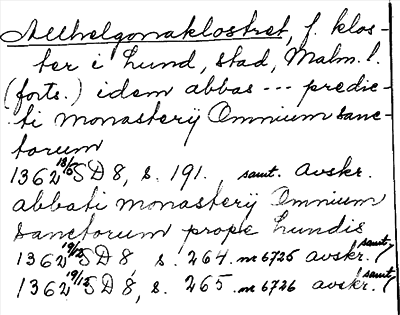 Allhelgonaklostret, f. klos-
ter i Lund, stad, Malm. l.
(forts.) idem abbas --- predic-
ti monasterij Omnium sanc-
torum
1362 18/6 SD 8, s. 191. samt. avskr.
abbati monasterij Omnium
Sanctorum prope Lundis
1362 19/12 SD 8, s. 264. nr 6725 avskr. (samt.)
1362 19/12 SD 8, s. 265. nr 6726 avskr. (samt.)